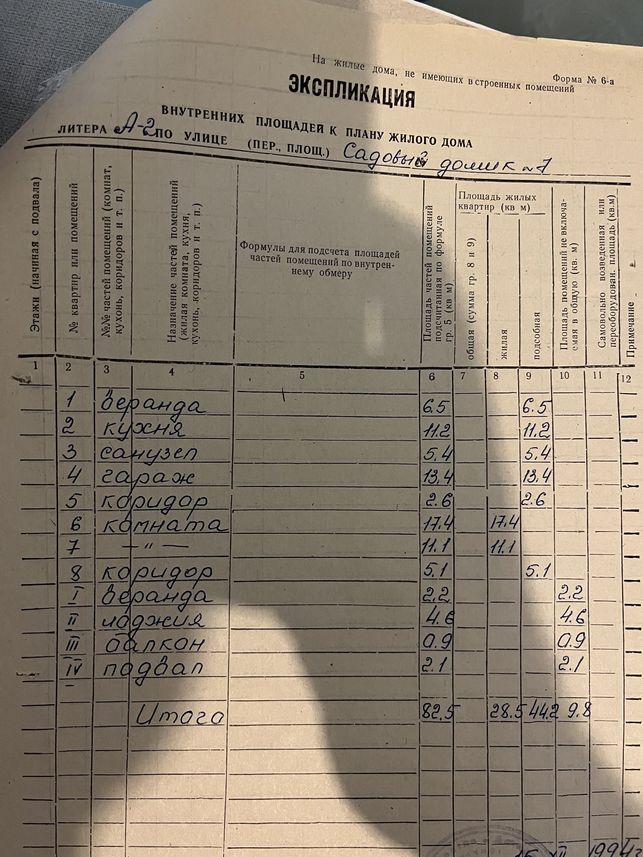 На жилые дома, не имеющих встроенных помещений
Форма № 6-а
ЭКСПЛИКАЦИЯ
ВНУТРЕННИХ ПЛОЩАДЕЙ К ПЛАНУ ЖИЛОГО ДОМА
ЛИТЕРА А-2 ПО УЛИЦЕ (ПЕР., ПЛОЩ.) Садовый домик №7
Этажи (начиная с подвала)
№ квартир или помещений
№№ частей помещений (комнат, кухонь, коридоров и т. п.)
Назначение частей помещений (жилая комната, кухня, кухонь, коридоров и т. п.)
Формулы для подсчета площадей
частей помещений по внутрен-
нему обмеру
Площадь частей помещений подсчитанная по формуле гр. 5 (кв м)
Площадь жилых
квартир (кв м)
общая (сумма гр. 8 и 9)
жилая
подсобная
Площадь помещений не включа-емая в общую (кв. м)
Самовольно возведенная или переоборудован. площадь (кв.м)
Примечание
1 2 3 4 5 6 7 8 9 10 11 12
1 веранда 6.5 6.5
2 кухня 11.2 11.2
3 санузел 5.4 5.4
4 гараж 13.4 13.4
5 коридор 2.6 2.6
6 комната 17.4 17.4
7 —"— 11.1 11.1
8 коридор 5.1 5.1
I веранда 2.2 2.2
II лоджия 4.6 4.6
III балкон 0.9 0.9
IV подвал 2.1 2.1
Итого 82.5 28.5 44.2 9.8
XII 1994г